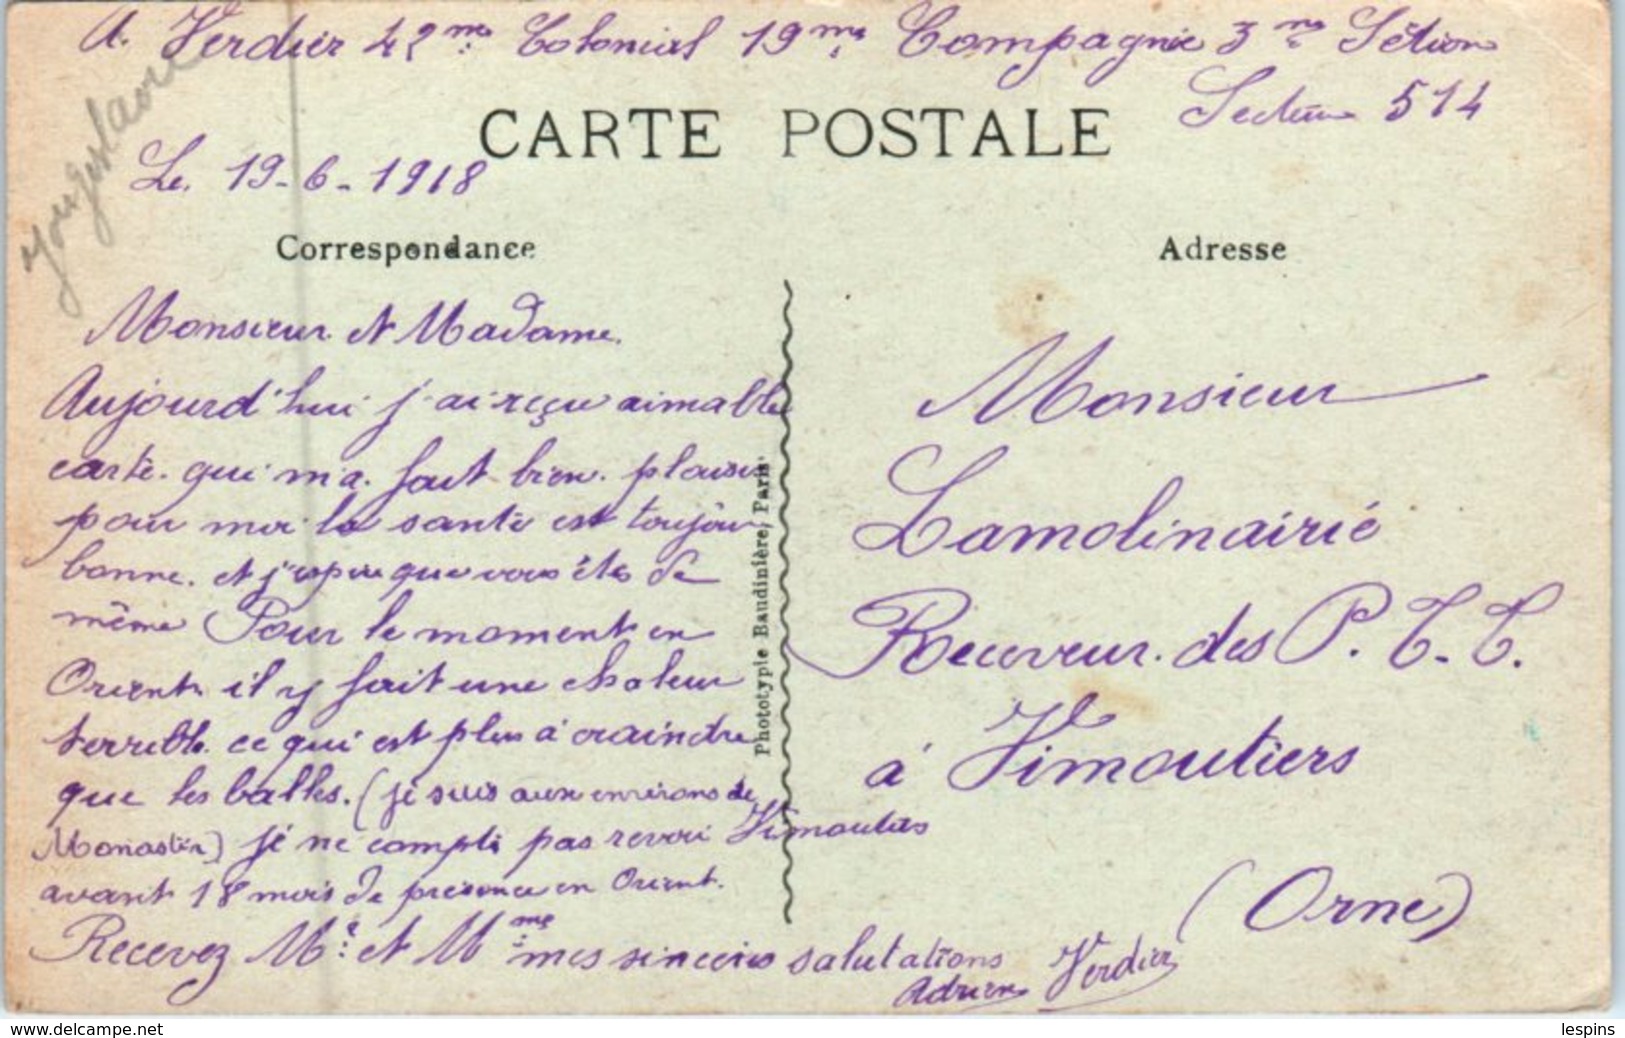 A. Verdier 42me Colonial 19me Compagnie 3me Séction
Secteur 514
Yougoslavie
CARTE POSTALE
Le. 19-6-1918
Correspondance
Adresse
Monsieur et Madame.
Aujourd'hui j'ai reçu aimable
carte. qui m'a. fait bien. plaisir
pour moi la santé est toujour
bonne. et j'espère que vous êtes de
même Pour le moment en
Orient. il y fait une chaleur
terrible. ce qui est plus à craindre
que les balles. (je suis aux environs de
Monastir) je ne compte pas revoir Vimoutiers
avant 18 mois de présence en Orient.
Recevez Mr. et Mme mes sincères salutations
Adrien Verdier
Phototypie Baudinière, Paris
Monsieur
Lamolinairie
Receveur. des P. T. T.
à Vimoutiers
(Orne)
you've got: delcampe.net
lespins